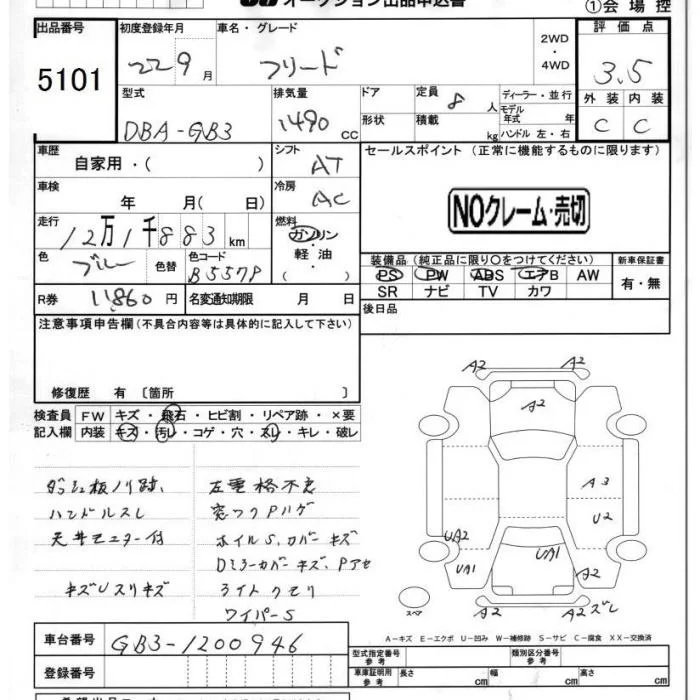 オークション出品申込書
①会場控
出品番号 初度登録年月 車名・グレード 2WD・4WD 評価点
5101 22 9月 フリード 3.5
型式 排気量 ドア 定員 8人 ディーラー・並行 外装 内装
DBA-GB3 1490cc 形状 積載 kg モデル年式 年 ハンドル 左・右 C C
車歴 自家用・( ) シフト AT セールスポイント (正常に機能するものに限ります)
車検 年 月( 日) 冷房 AC
NOクレーム・売切
走行 12万1千883km 燃料 ガソリン・軽油・( )
色 ブルー 色替 色コード B557P
装備品 (純正品に限り○をつけてください) 新車保証書
PS PW ABS エアB AW 有・無
SR ナビ TV カワ
R券 11860円 名変通知期限 月 日 後日品
注意事項申告欄(不具合内容等は具体的に記入して下さい)
修復歴 有 〔箇所 〕
検査員記入欄 FW キズ・飛石・ヒビ割・リペア跡・×要
内装 キズ・汚レ・コゲ・穴・スレ・キレ・破レ
ダッシュ板ノリ跡、 左重格不良
ハンドルスレ 窓フクPハゲ
天井モニター付 ホイルS、カバーキズ
Dミラーカバーキズ、Pアセ
キズUスリキズ ライトクモリ
ワイパーS
A2 A2
A2
A3
U2
UA2
UA1 UA1 A2
A2 A2ズレ
スペア
A-キズ E-エクボ U-凹み W-補修跡 S-サビ C-腐食 XX-交換済
車台番号 GB3-1200946
型式指定番号 参考 類別区分番号 参考
登録番号
車庫証明用 参考 長さ cm 幅 cm 高さ cm